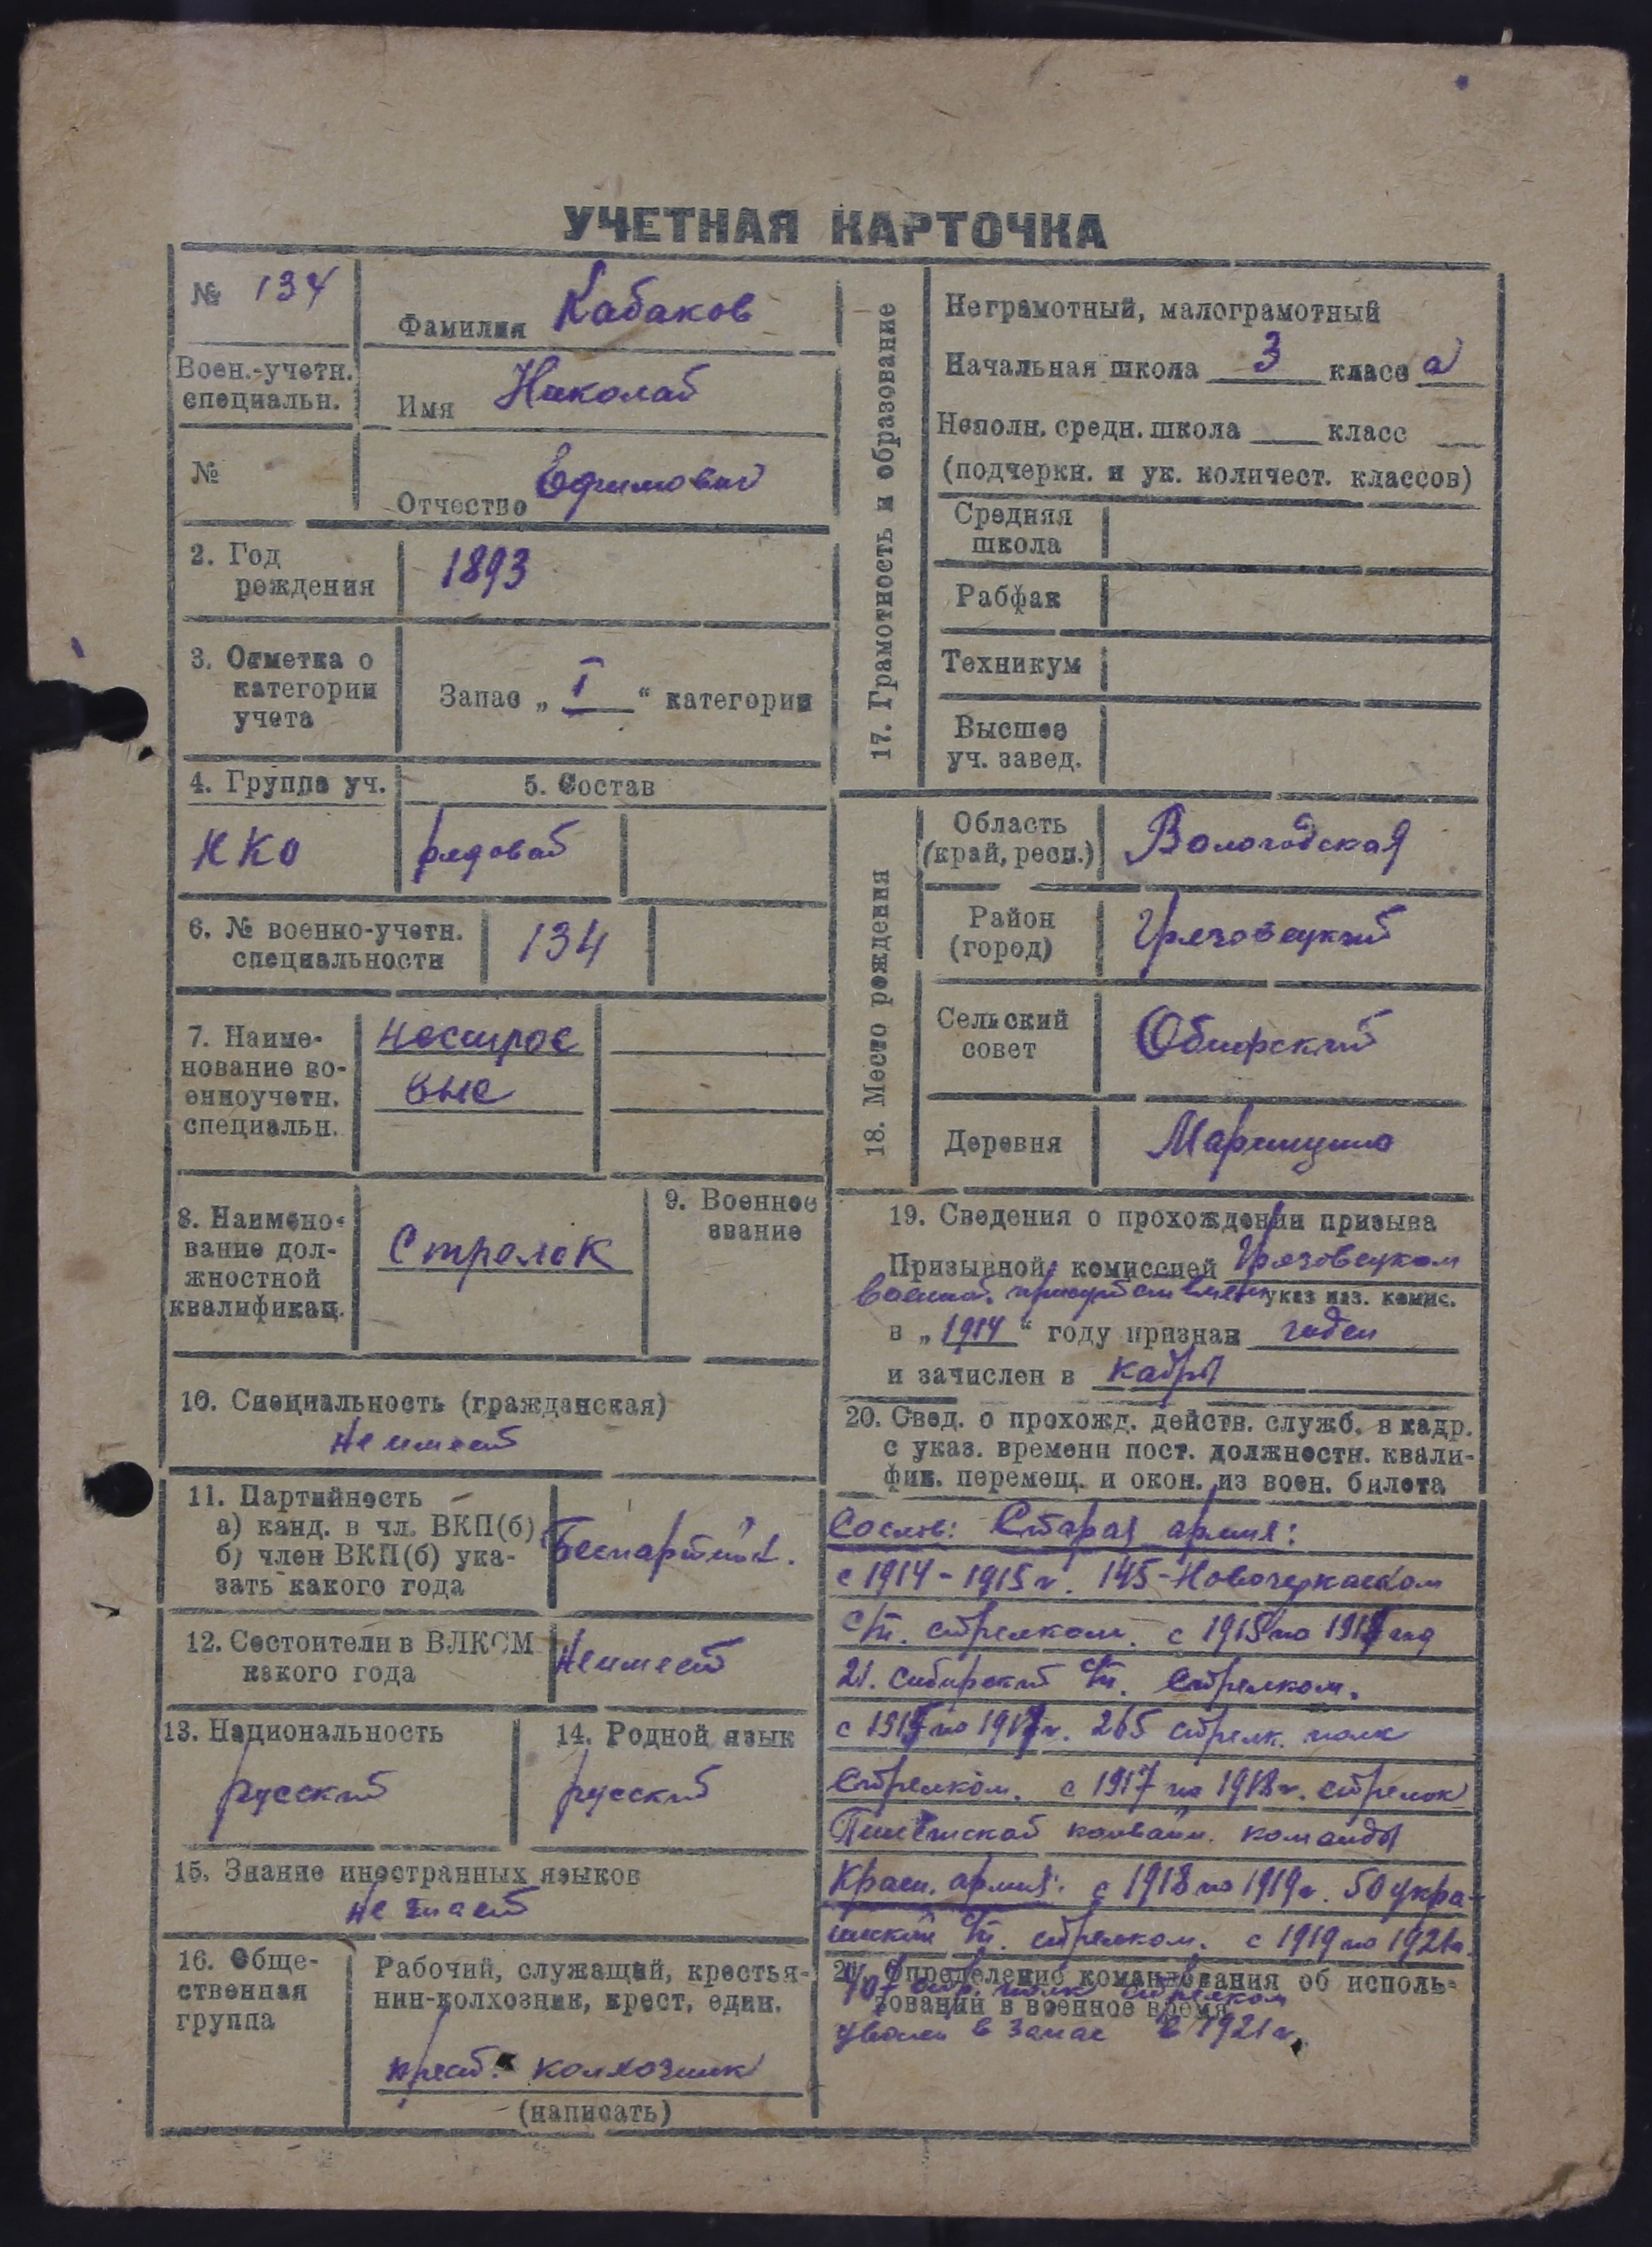 УЧЕТНАЯ КАРТОЧКА
№ 134
Фамилия Кабаков
Воен.-учетн.
специальн.
Имя Николай
№
Отчество Ефимович
2. Год
рождения
1893
3. Отметка о
категории
учета
Запас „ I “ категории
4. Группа уч.
5. Состав
НКО
рядовой
6. № военно-учетн.
специальности
134
7. Наиме-
нование во-
енноучетн.
специальн.
нестрое
вые
8. Наимено-
вание дол-
жностной
квалификац.
Стрелок
9. Военное
звание
10. Специальность (гражданская)
Не имеет
11. Партийность
а) канд. в чл. ВКП(б)
б) член ВКП(б) ука-
зать какого года
Беспартийн.
12. Состоит ли в ВЛКСМ
какого года
Не имеет
13. Национальность
русский
14. Родной язык
русский
15. Знание иностранных языков
Не знает
16. Обще-
ственная
группа
Рабочий, служащий, крестья-
нин-колхозник, крест. един.
крест. колхозник
(написать)
17. Грамотность и образование
Неграмотный, малограмотный
Начальная школа 3 класс а
Неполн. средн. школа класс
(подчеркн. и ук. количест. классов)
Средняя
школа
Рабфак
Техникум
Высшее
уч. завед.
18. Место рождения
Область
(край, респ.)
Вологодская
Район
(город)
Грязовецкий
Сельский
совет
Обнорский
Деревня
19. Сведения о прохождении призыва
Призывной комиссией Грязовецком
указ наз. комис.
воинск. присутствием
в „ 1914 “ году признан годен
и зачислен в кадры
20. Свед. о прохожд. действ. служб. в кадр.
с указ. времени пост. должностн. квали-
фик. перемещ. и окон. из воен. билета
Со слов: Старая армия:
с 1914 - 1915 г. 145 - Новочеркаском
стрелком. с 1915 по
21. Сибирский стрелком.
по 1917 г. 265 стрелк. полк
стрелком. с 1917 по 1918 г. стрелок
конвойн. команды
Красн. армия: с 1918 по 1919 г. 50 укра-
инский стрелком. с 1919 по 1921 г.
21. Определение командования об исполь-
зовании в военное время
стр. полк стрелком
уволен в запас в 1921 г.